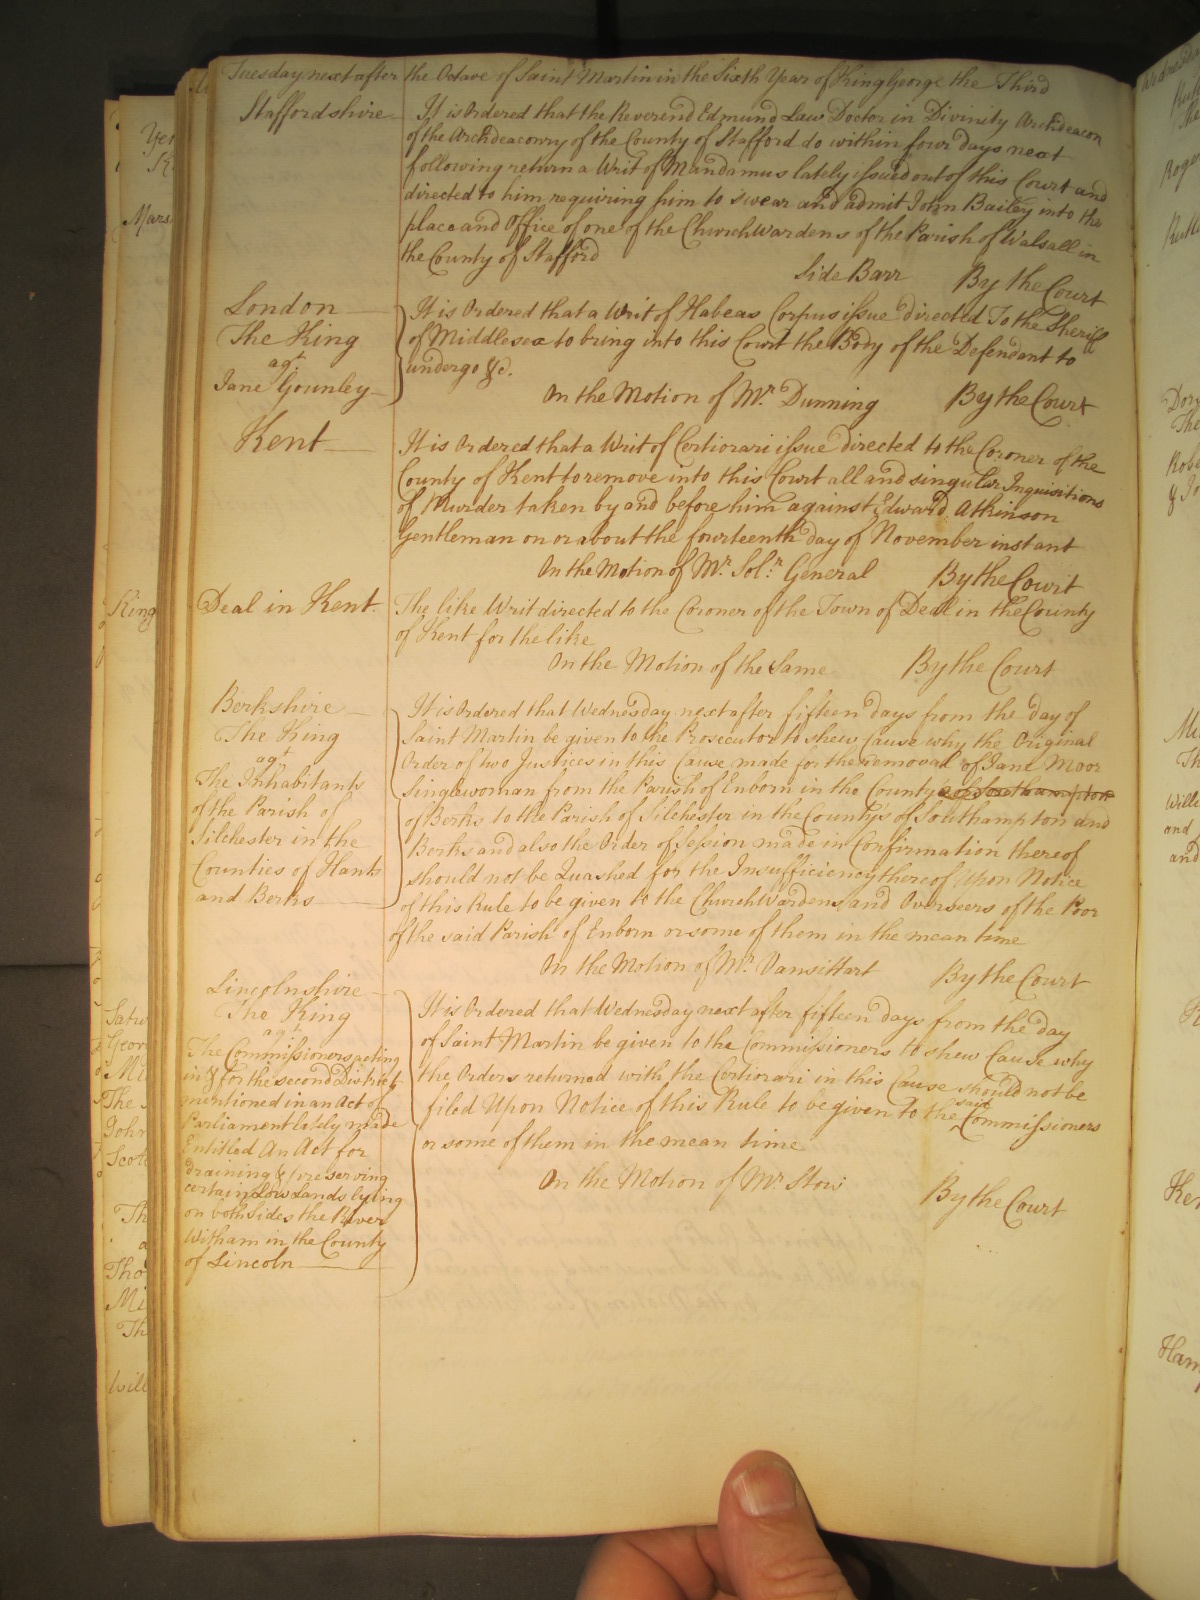 Tuesday next after the Octave of Saint Martin in the Sixth Year of King George the Third
Staffordshire
It is Ordered that the Reverend Edmund Law Doctor in Divinity Archdeacon
of the Archdeaconry of the County of Stafford do within four days next
following return a Writ of Mandamus lately issued out of this Court and
directed to him requiring him to swear and admit John Bailey into the
place and Office of one of the Church Wardens of the Parish of Walsall in
the County of Stafford
Side Barr By the Court
London
The King
agt.
Jane Gounley
It is Ordered that a Writ of Habeas Corpus issue directed To the Sheriff
of Middlesex to bring into this Court the Body of the Defendant to
undergo &c.
On the Motion of Mr. Dunning By the Court
Kent
It is Ordered that a Writ of Certiorari issue directed to the Coroner of the
County of Kent to remove into this Court all and singular Inquisitions
of Murder taken by and before him against Edward Atkinson
Gentleman on or about the fourteenth day of November instant
On the Motion of Mr. Solr. General By the Court
Deal in Kent
The like Writ directed to the Coroner of the Town of Deal in the County
of Kent for the like
On the Motion of the Same By the Court
Berkshire
The King
agt
The Inhabitants
of the Parish of
Silchester in the
Counties of Hants
and Berks
It is Ordered that Wednesday next after fifteen days from the day of
Saint Martin be given to the Prosecutor to shew Cause why the Original
Order of two Justices in this Cause made for the removal of Jane Moor
Singlewoman from the Parish of Enborn in the County of Southampton
of Berks to the Parish of Silchester in the County's of Southampton and
Berks and also the Order of Session made in Confirmation thereof
should not be Quashed for the Insufficiency thereof Upon Notice
of this Rule to be given to the Church Wardens and Overseers of the Poor
of the said Parish of Enborn or some of them in the mean time
On the Motion of Mr. Vansittart By the Court
Lincolnshire
The King
agt
The Commissioners acting
in & for the second District
mentioned in an Act of
Parliament lately made
Entitled An Act for
draining & preserving
certain Low Lands lying
on both Sides the River
Witham in the County
of Lincoln
It is Ordered that Wednesday next after fifteen days from the day
of Saint Martin be given to the Commissioners to shew Cause why
the Orders returned with the Certiorari in this Cause should not be
filed Upon Notice of this Rule to be given to the said Commissioners
or some of them in the mean time
On the Motion of Mr. Stow By the Court